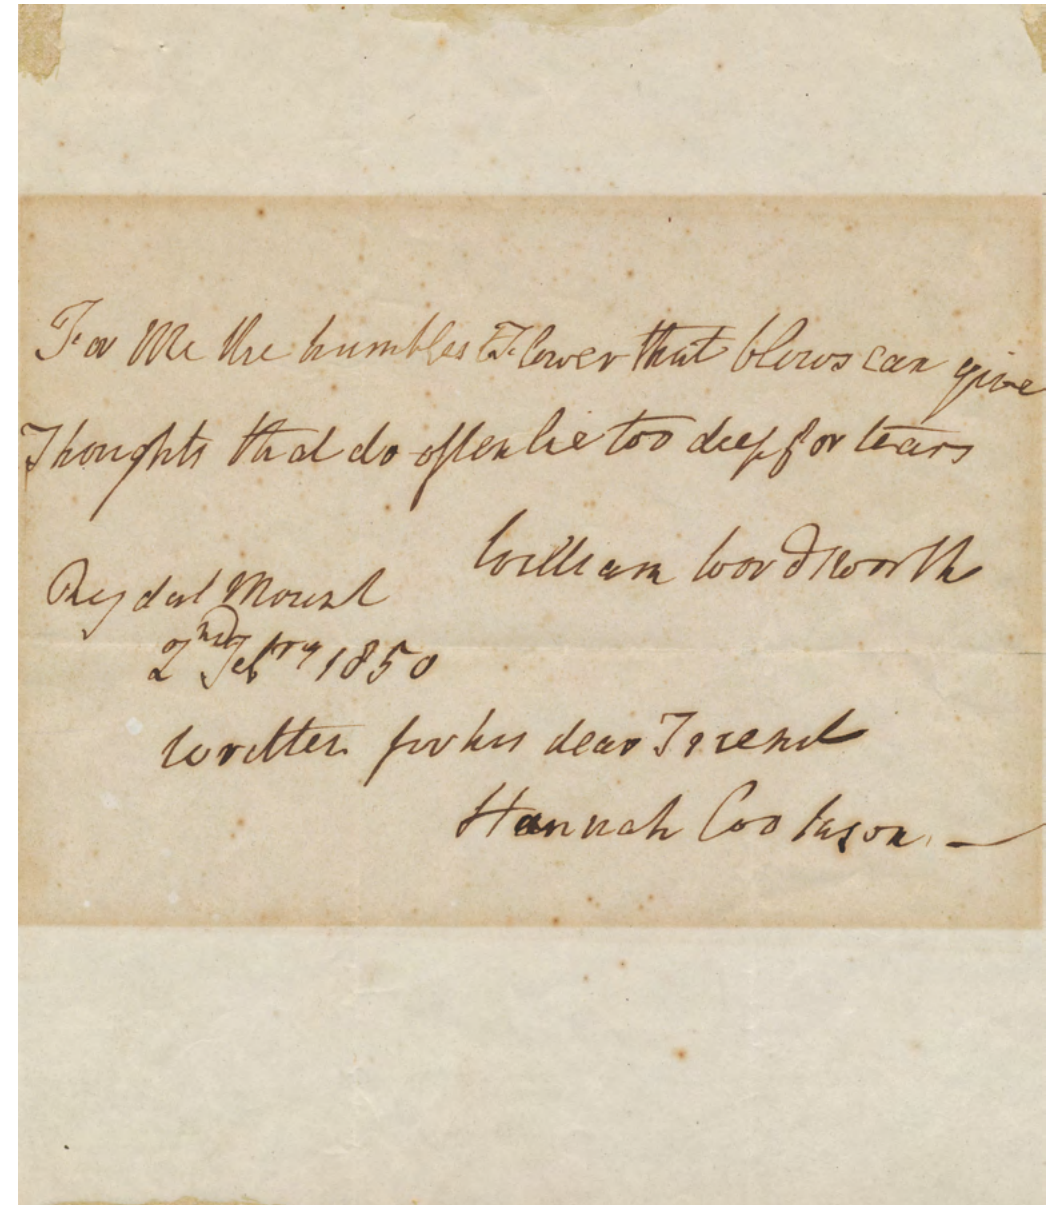 For Me the humblest Flower that blows can give
Thoughts that do often lie too deep for tears
William Wordsworth
Rydal Mount
2nd Febry 1850
Written for his dear Friend
Hannah Cookson. —